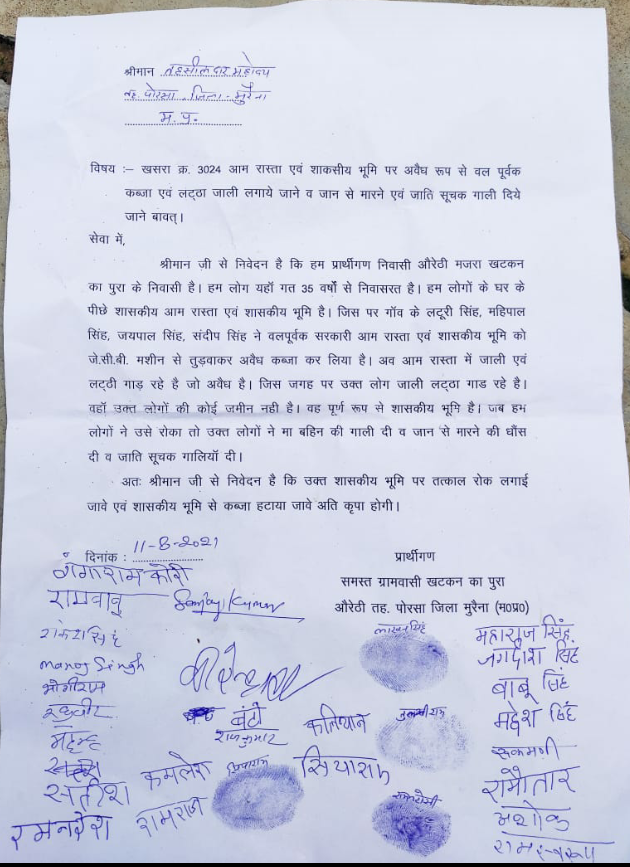 श्रीमान तहसीलदार महोदय
तह. पोरसा, जिला - मुरैना
म. प्र.
विषय :– खसरा क्र. 3024 आम रास्ता एवं शाकसीय भूमि पर अवैध रूप से वल पूर्वक
कब्जा एवं लट्ठा जाली लगाये जाने व जान से मारने एवं जाति सूचक गाली दिये
जाने बावत्।
सेवा में,
श्रीमान जी से निवेदन है कि हम प्रार्थीगण निवासी औरेठी मजरा खटकन
का पुरा के निवासी है। हम लोग यहॉं गत 35 वर्षो से निवासरत है। हम लोगों के घर के
पीछे शासकीय आम रास्ता एवं शासकीय भूमि है। जिस पर गॉव के लटूरी सिंह, महिपाल
सिंह, जयपाल सिंह, संदीप सिंह ने वलपूर्वक सरकारी आम रास्ता एवं शासकीय भूमि को
जे.सी.बी. मशीन से तुड़वाकर अवैध कब्जा कर लिया है। अब आम रास्ता में जाली एवं
लट्ठी गाड़ रहे है जो अवैध है। जिस जगह पर उक्त लोग जाली लट्ठा गाड रहे है।
वहॉं उक्त लोगों की कोई जमीन नही है। वह पूर्ण रूप से शासकीय भूमि है। जब हम
लोगों ने उसे रोका तो उक्त लोगों ने मा बहिन की गाली दी व जान से मारने की धौंस
दी व जाति सूचक गालियॉ दी।
अतः श्रीमान जी से निवेदन है कि उक्त शासकीय भूमि पर तत्काल रोक लगाई
जावे एवं शासकीय भूमि से कब्जा हटाया जावे अति कृपा होगी।
दिनांक : 11-8-2021
प्रार्थीगण
समस्त ग्रामवासी खटकन का पुरा
औरेठी तह. पोरसा जिला मुरैना (म0प्र0)
गंगाराम कोरी
रामबाबू
Sanjay Kumar
लाखन सिंह
महाराज सिंह
जगदीश सिंह
manoj Singh
बाबू सिंह
भोगीराम
बंटी
राजकुमार
तुलसीराम
महेश सिंह
रूकमणी
कमलेश
सियाराम
रामौतार
सतीश
रामराज
अशोक
रामनरेश
रामस्वरूप